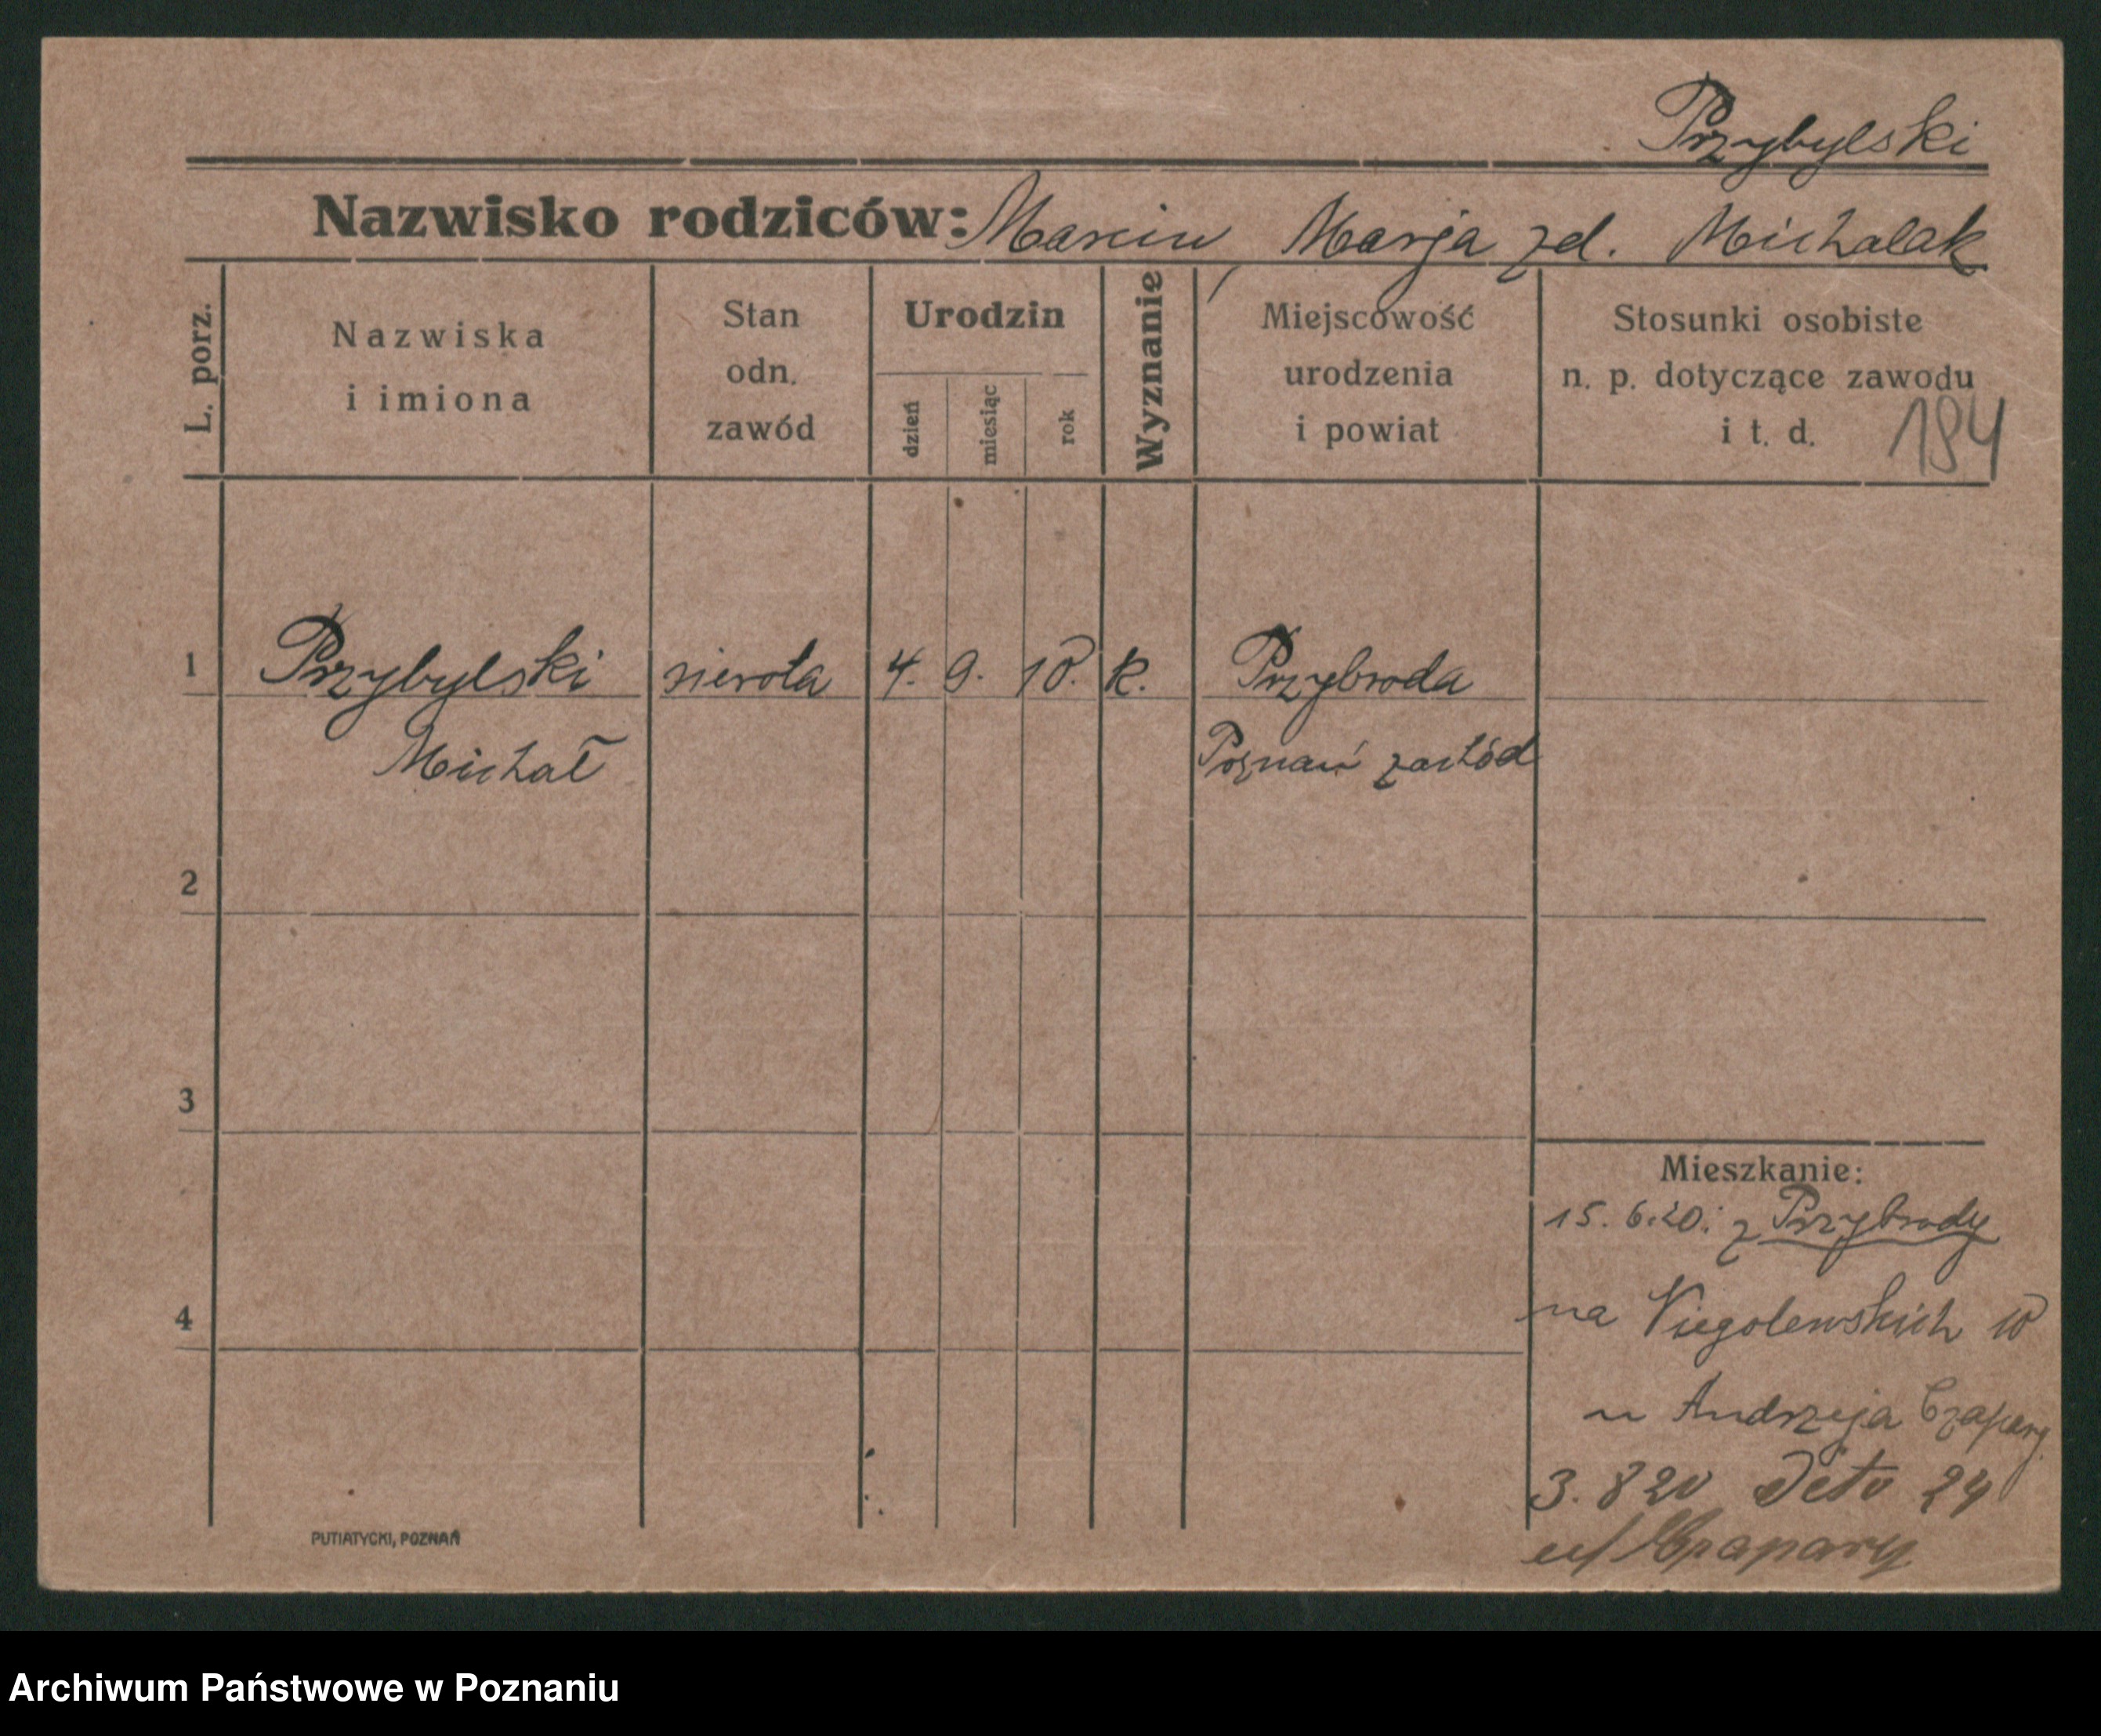 Przybylski
Nazwisko rodziców: Marcin, Marja zd. Michalak
L. porz.
Nazwiska
i imiona
Stan
odn.
zawód
Urodzin
dzień
miesiąc
rok
Wyznanie
Miejscowość
urodzenia
i powiat
Stosunki osobiste
n. p. dotyczące zawodu
i t. d.
194
1 Przybylski sierota 4. 9. 10. k. Przybroda
Michał Poznań zachód
2
3
4
Mieszkanie:
15. 6. 20. z Przybrody
na Niegolewskich 10
u Andrzeja Czapary
3. 8 20 Deto 24
u/ Czapary
PUTIATYCKI, POZNAŃ
Archiwum Państwowe w Poznaniu